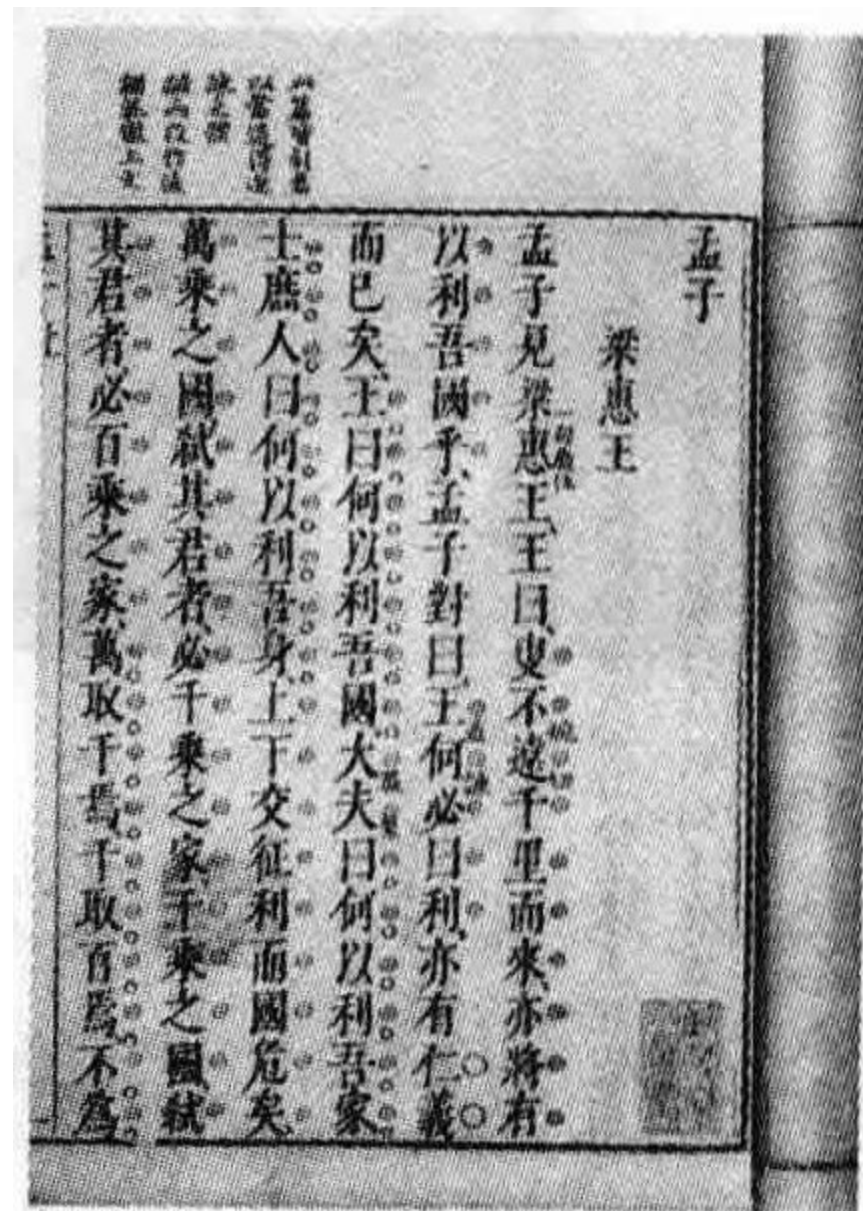 孟子
梁惠王
孟子見梁惠王、王曰、叟不遠千里而來、亦將有
以利吾國乎、孟子對曰、王何必曰利、亦有仁義
而已矣、王曰何以利吾國、大夫曰何以利吾家
士庶人曰何以利吾身、上下交征利而國危矣
萬乘之國、弒其君者、必千乘之家、千乘之國弒
其君者必百乘之家、萬取千焉、千取百焉、不為